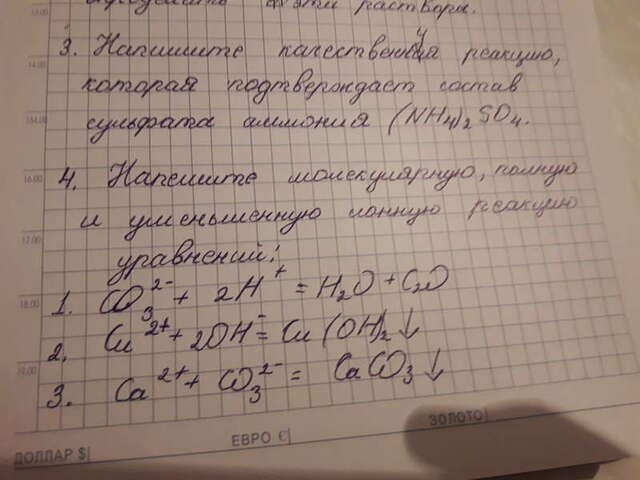 растворы.
3. Напишите качественную реакцию,
которая подтверждает состав
сульфата аммония (NH4)2SO4.
4. Напишите молекулярную, полную
и уменьшенную ионную реакцию
уравнений:
1. CO3 2- + 2H+ = H2O + C2O
2. Cu 2+ + 2OH- = Cu(OH)2↓
3. Ca 2+ + CO3 2- = CaCO3↓
14.00
16.00
17.00
18.00
19.00
ДОЛЛАР $| ЕВРО €| ЗОЛОТО|